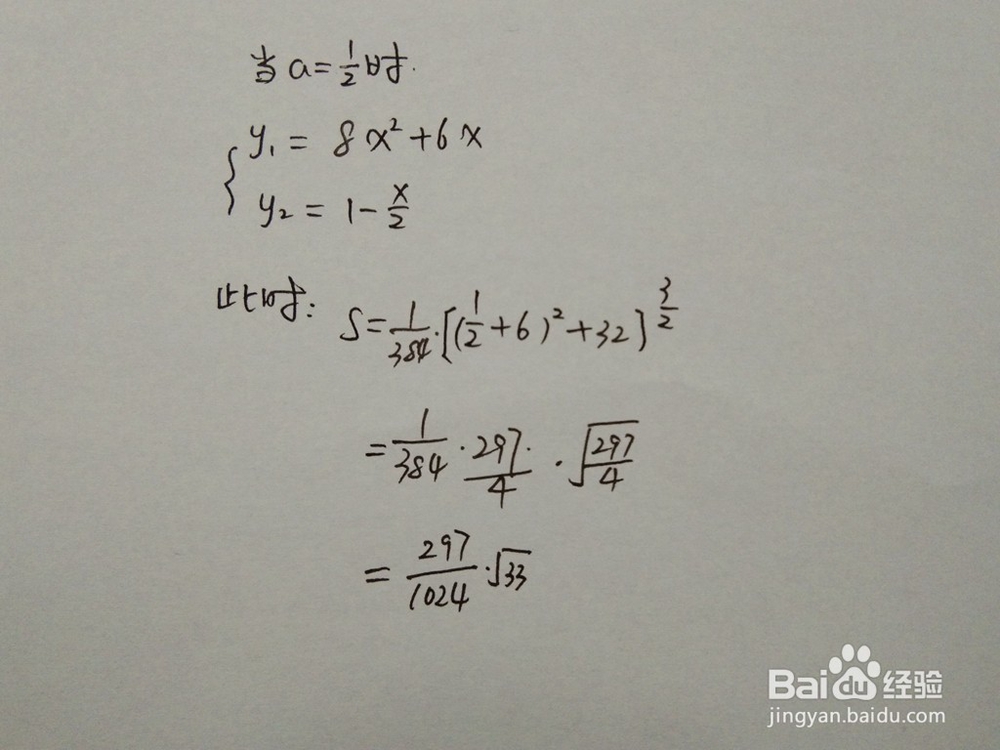 当 a=1/2 时.
y₁ = 8x²+6x
y₂ = 1-x/2
此时: S=1/384·[(1/2+6)²+32]^(3/2)
=1/384·297/4·√(297/4)
=297/1024·√33
Baidu经验
jingyan.baidu.com